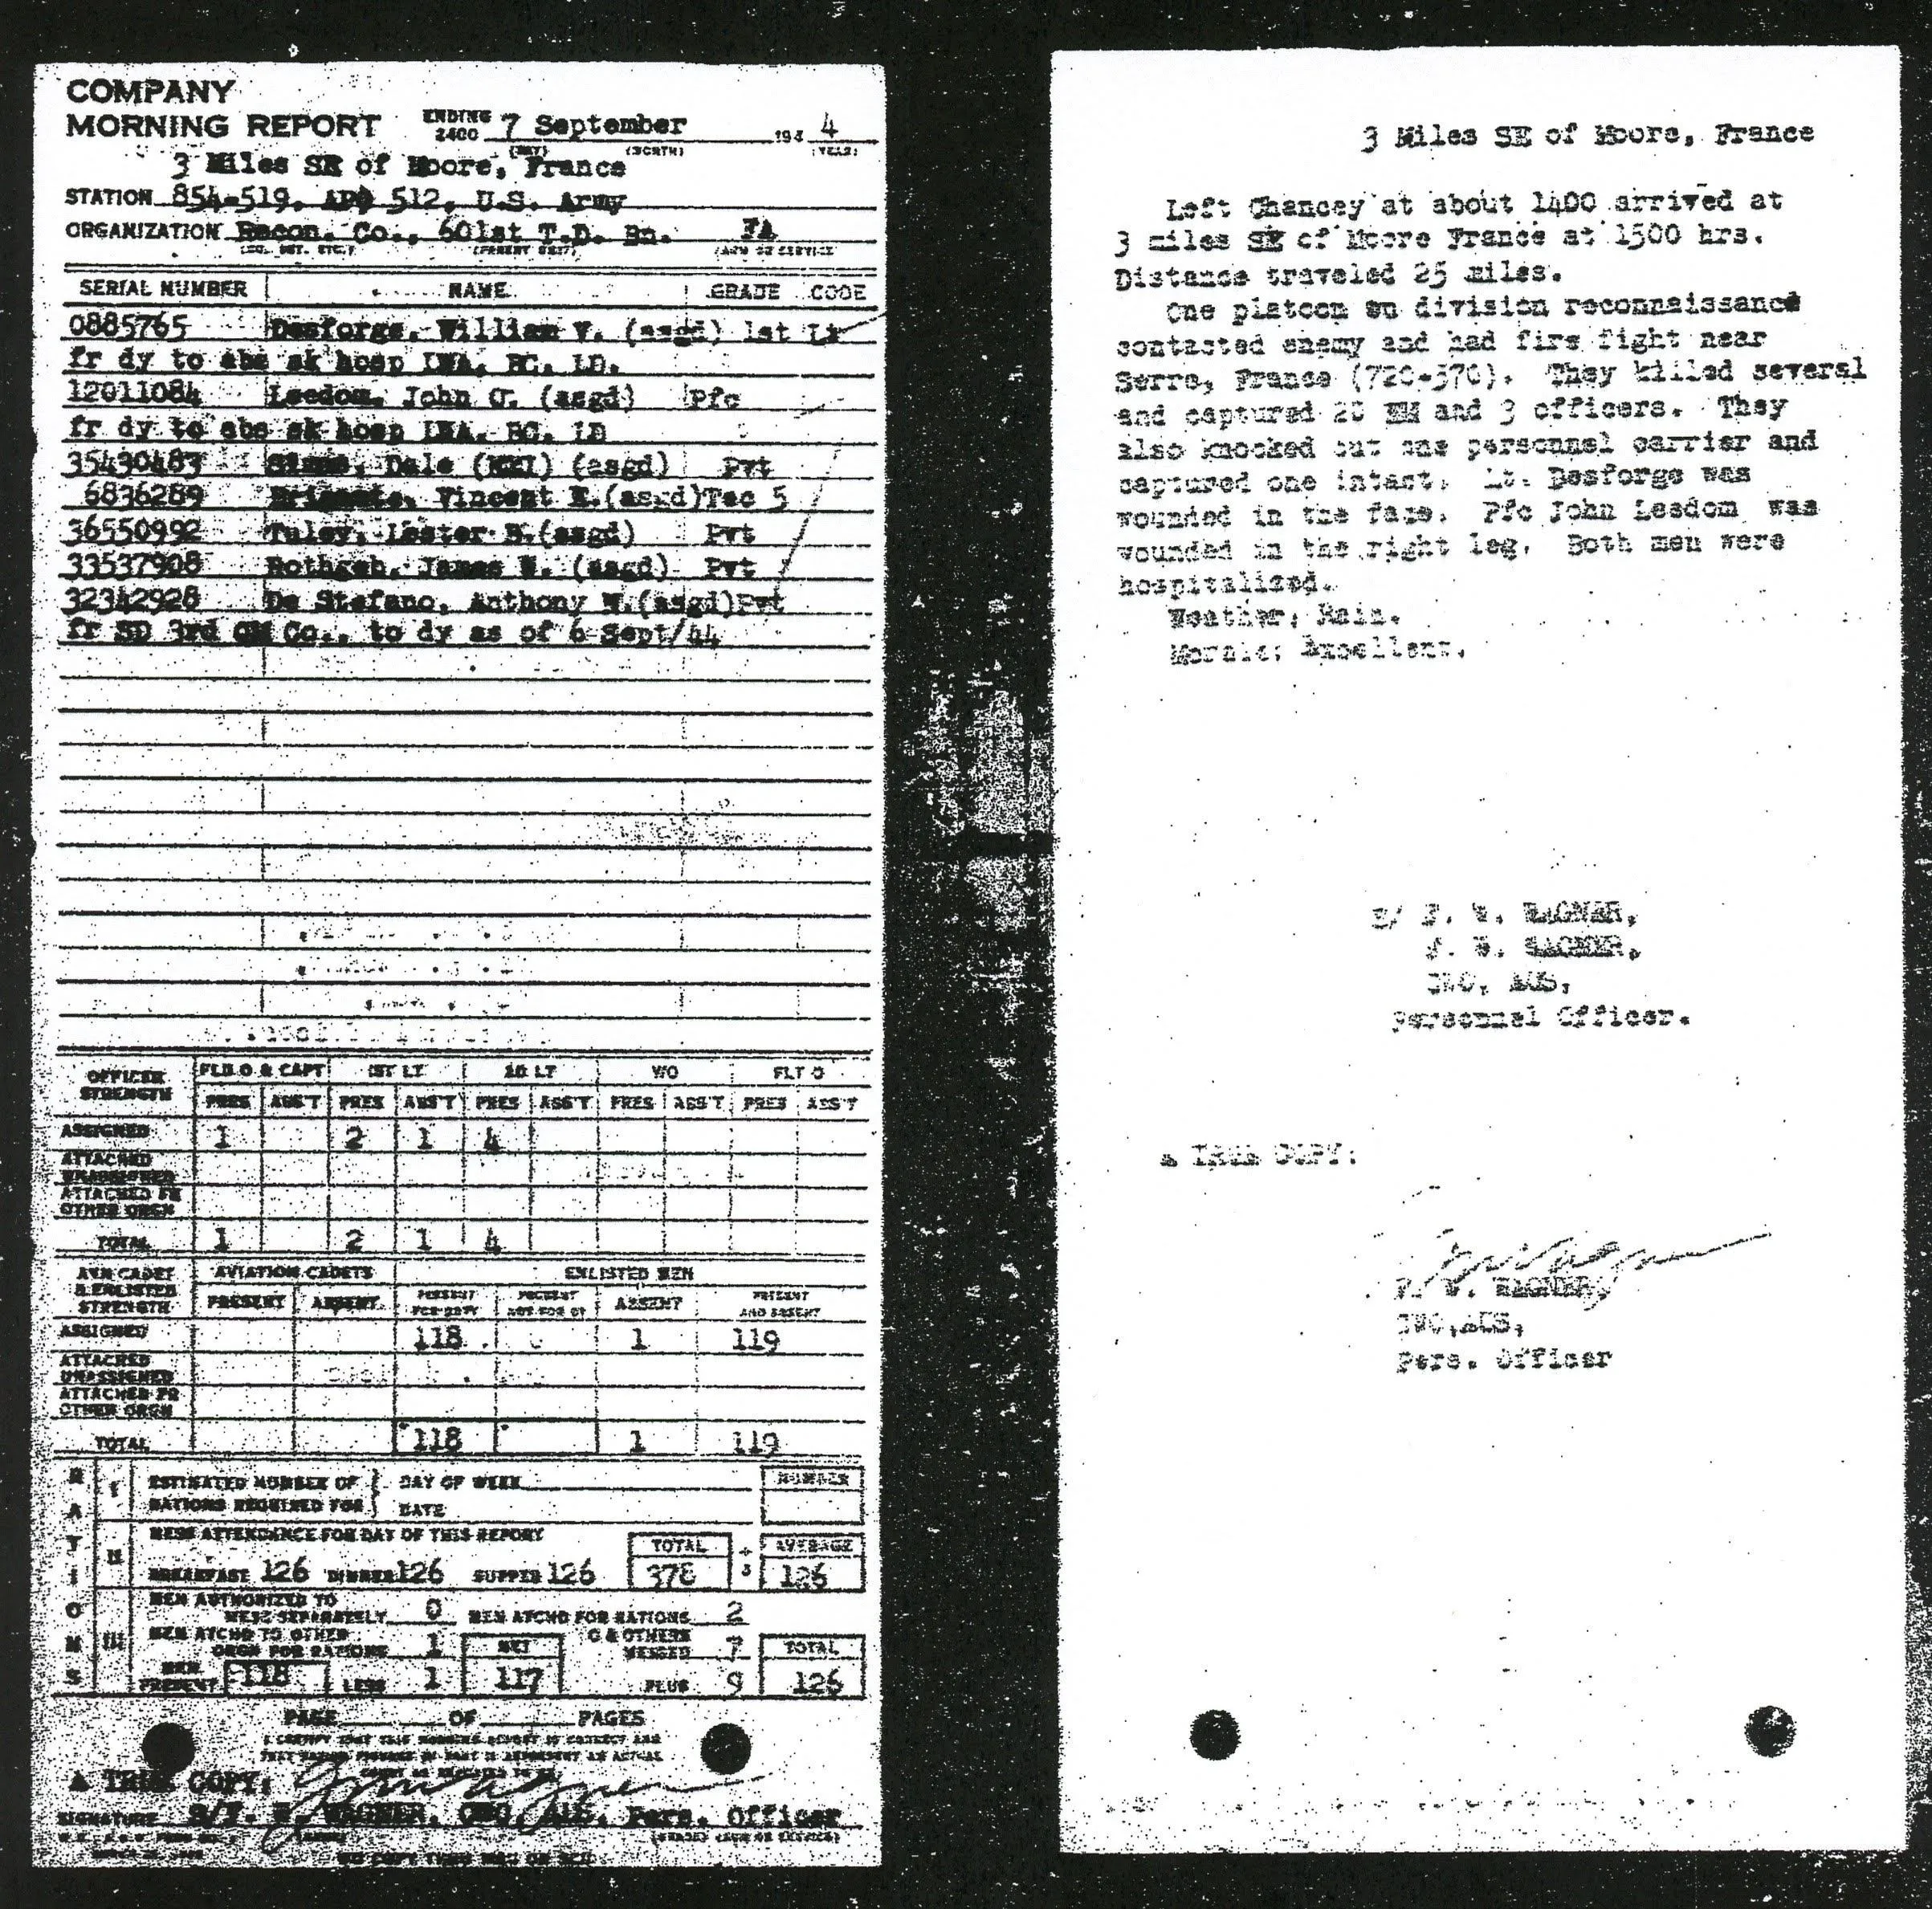 COMPANY
MORNING REPORT ENDING 2400 7 September 194 4
(DAY) (MONTH) (YEAR)
3 Miles SE of Moore, France
STATION 854-519, APO 512, U.S. Army
ORGANIZATION Recon. Co., 601st T.D. Bn. FA
(CO. DET. ETC.) (PARENT UNIT) (ARM OR SERVICE)
SERIAL NUMBER NAME GRADE CODE
0885765 Desforge, William V. (asgd) 1st Lt
fr dy to abs sk hosp LWA, BC, LD.
12011084 Leedom, John G. (asgd) Pfc
fr dy to abs sk hosp LWA, BC, LD
35430483 Dale (NMI) (asgd) Pvt
6836289 Vincent E.(asgd)Tec 5
36550992 Tuley, Lester B.(asgd) Pvt
33537908 Rothgeb, James W. (asgd) Pvt
32342928 De Stefano, Anthony (asgd)Pvt
fr SD 3rd QM Co., to dy as of 6 Sept/44
OFFICER STRENGTH FLD O & CAPT 1ST LT 2D LT WO FLT O
PRES ABS'T PRES ABS'T PRES ABS'T PRES ABS'T PRES ABS'T
ASSIGNED 1 2 1 4
ATTACHED UNASSIGNED
ATTACHED FR OTHER ORGN
TOTAL 1 2 1 4
AVN CADET & ENLISTED STRENGTH AVIATION CADETS ENLISTED MEN
PRESENT ABSENT PRESENT FOR DUTY PRESENT NOT FOR DY ABSENT PRESENT AND ABSENT
ASSIGNED 118 1 119
ATTACHED UNASSIGNED
ATTACHED FR OTHER ORGN
TOTAL 118 1 119
RATIONS
I ESTIMATED NUMBER OF RATIONS REQUIRED FOR DAY OF WEEK DATE NUMBER
II MESS ATTENDANCE FOR DAY OF THIS REPORT TOTAL ÷ 3 AVERAGE
BREAKFAST 126 DINNER 126 SUPPER 126 378 126
III MEN AUTHORIZED TO MESS SEPARATELY 0 MEN ATCHD FOR RATIONS 2
MEN ATCHD TO OTHER ORGN FOR RATIONS 1 NET O & OTHERS MESSED 7 TOTAL
MEN PRESENT 118 LESS 1 117 PLUS 9 126
PAGE OF PAGES
I CERTIFY THAT THIS MORNING REPORT IS CORRECT AND
A TRUE COPY:
SIGNATURE S/F. W. WAGNER, CWO, AUS, Pers. Officer
3 Miles SE of Moore, France
Left Chancey at about 1400 arrived at
3 miles SE of Moore France at 1500 hrs.
Distance traveled 25 miles.
One platoon on division reconnaissance
contacted enemy and had fire fight near
Serre, France (720-570). They killed several
and captured 28 EM and 3 officers. They
also knocked out one personnel carrier and
captured one intact. Lt. Desforge was
wounded in the face. Pfc John Leedom was
wounded in the right leg. Both men were
hospitalized.
Weather; Rain.
Morale; Excellent.
s/ F. W. WAGNER,
F. W. WAGNER,
CWO, AUS,
Personnel Officer.
A TRUE COPY:
F. W. WAGNER,
CWO,AUS,
Pers. Officer